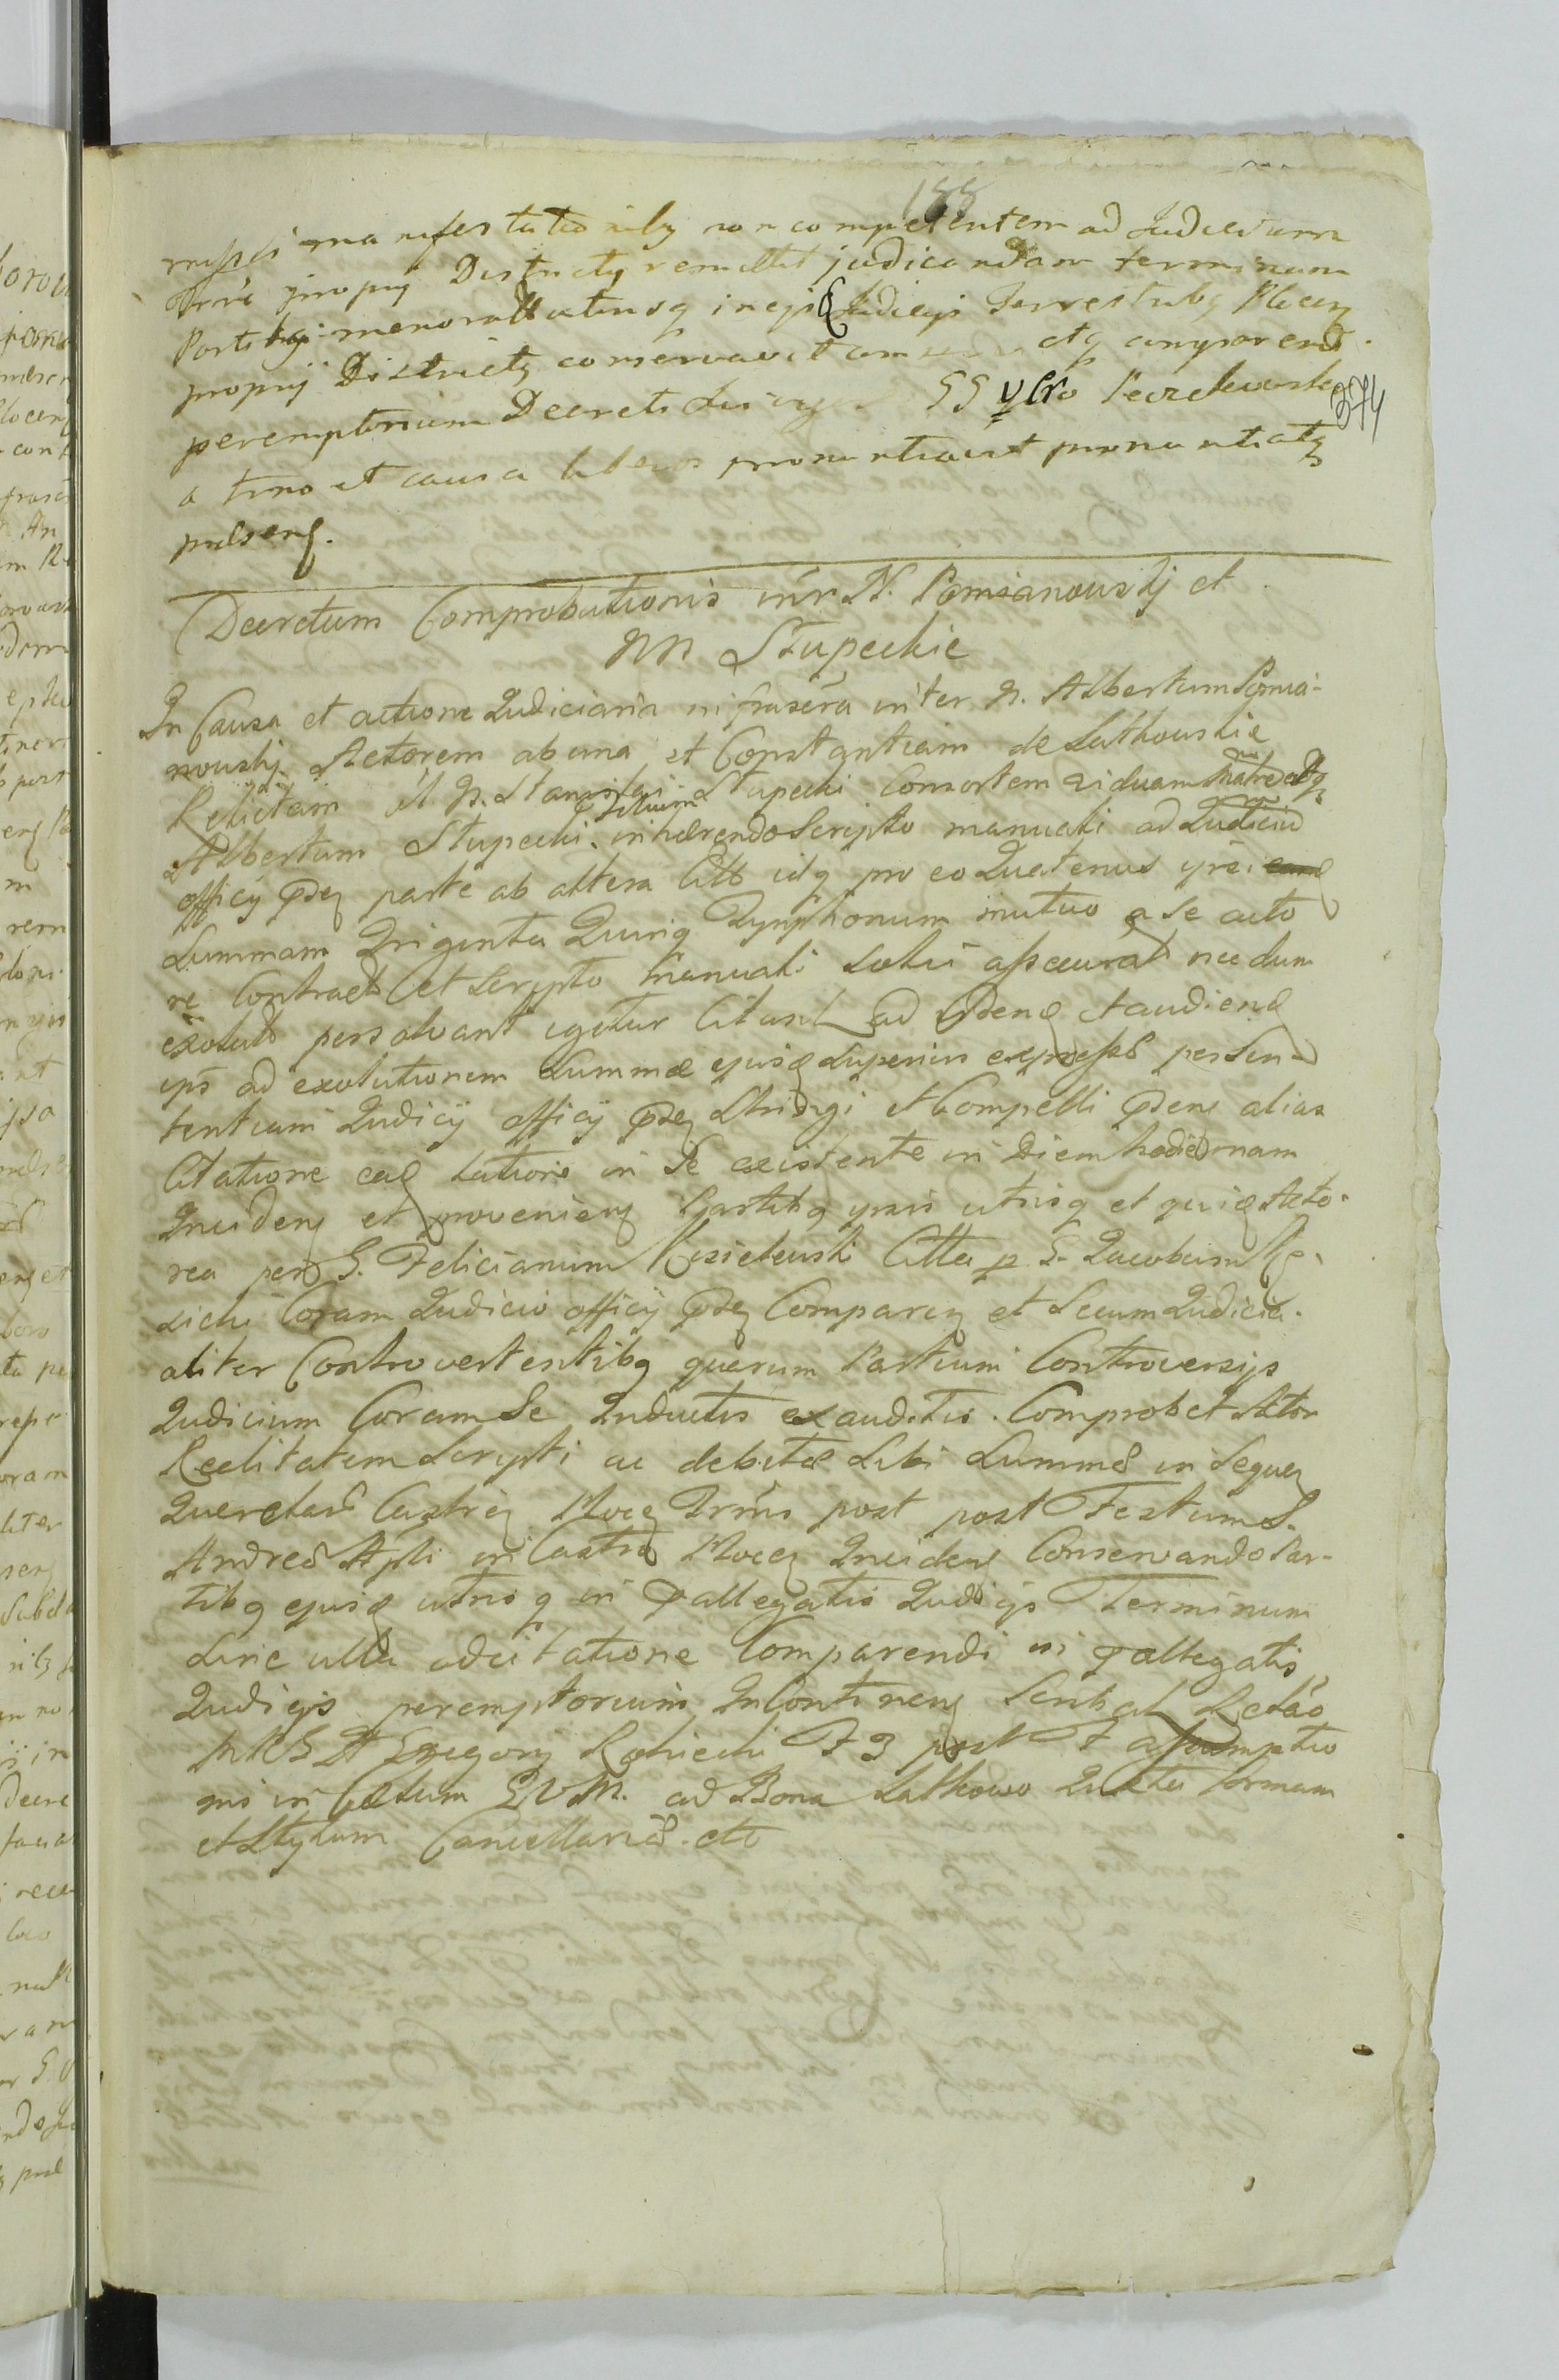 188
missi manifestationibq non competentem ad Judicium
Trre proprij Districtq remittit judicandam terminum
Partibq memoratt utrisq in ejs Judicijs Terrestribq Plocen
proprij Districtq conservavit atq comparend
peremptorium Decreti sui vigore SS
374
a tmo et causa liberos pronuntiavit pronuntiatq
prdsenq.
Decretum Comprobationis intr N. Pomianowskj et
NN Słupeckie
In Causa et actione Judiciaria infrascra inter N. Albertum Pomia-
nowskj Actorem ab una et Constantiam de Lutkowskie
Relictam ol N. Stanislai Słupecki Consortem viduam matre atq
Albertum Słupecki Filium inhærendo Scripto manuali ad Judiciu
officij pden parte ab altera Citt idq pro eo Quatenus ipsi
Summam Triginta Quinq Tynphonum mutuo a se acto
re Contract et Scripto manuali sibi assecurat necdum
exolut persolvant igitur Citant ad vdend et audiend
ips ad exolutionem Summæ ejusd superius express per Sen-
tentiam Judicij officij pden Stringi et Compelli pdens alias
Citatione ead latiore in se existente in Diem hodiernam
Inciden et provenien Partibq ipsis utrisq et quidem Acto-
rea per G. Felicianum Kisielewski Citta p G. Jacobum
sicki Coram Judicio officij pden Comparen et secum Judici-
aliter Controvertentibq quarum Partium Controversijs
Judicium Coram Se Inductis exauditis. Comprobet Actor
Realitatem Scripti ac debitæ sibi Summæ in sequen
Querelar Castren Plocen Trmis post post Festum S.
Andreæ Apli in Castro Plocen Inciden Conservando Par-
tibq ejusd utrisq in pallegatis Judicijs Terminum
sine ulla adcitatione Comparendi in pallegatis
Judicijs peremptorium In Continen Scribat Relâo
post F assumptio
nis in Cœlum BVM. ad Bona Lutkowo Juxta formam
et Stylum Cancellariæ. etc